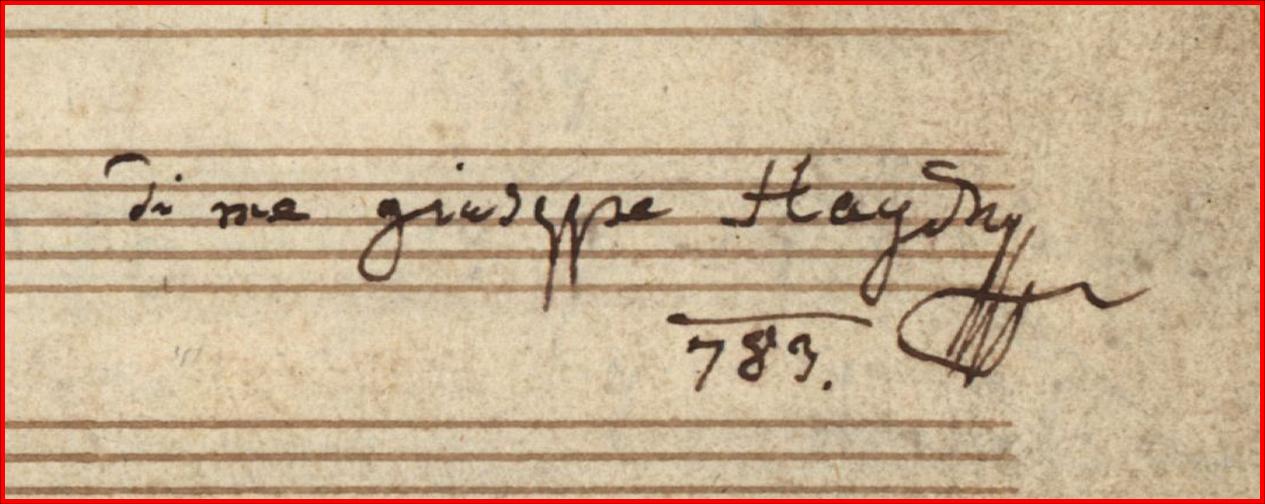 di me giuseppe Haydn
783.